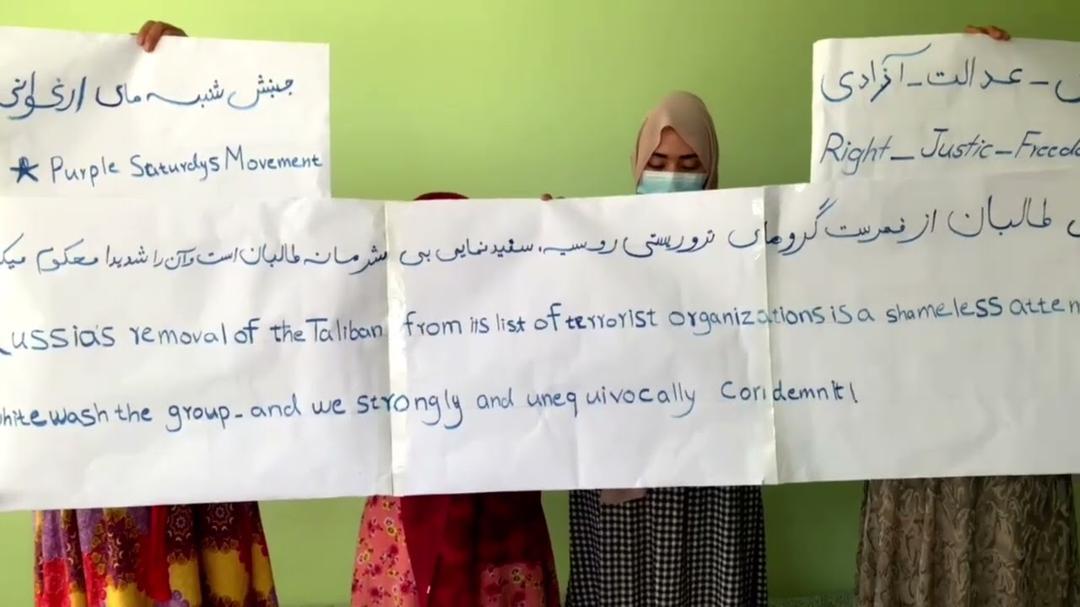 جنبش شنبه های ارغوانی
★ Purple Saturdys Movement
عدالت - آزادی
Right - Justic - Freedo
طالبان از فهرست گروهای تروریستی روسیه، سفیدنمایی بی شرمانه طالبان است وآن را شدیدا محکوم میک
ussia's removal of the Taliban from its list of terrorist organizations is a shameless attem
hitewash the group - and we strongly and unequivocally Condemn it!